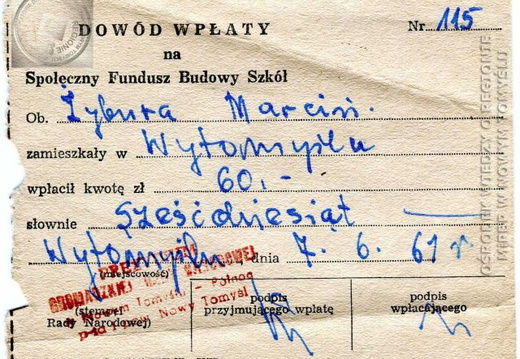 DOWÓD WPŁATY Nr 115
na
Społeczny Fundusz Budowy Szkół
Ob. Żybura Marcin.
zamieszkały w Wytomyślu
wpłacił kwotę zł 60.-
słownie sześćdziesiąt
Wytomyślu, dnia 7. 6. 61 r
(miejscowość)
GROMADZKIEJ RADY NARODOWEJ
w Nowym Tomyślu - Północ
(stempel podpis podpis
Rady Narodowej) przyjmującego wpłatę wpłacającego
pow. Nowy Tomyśl
OŚRODEK WIEDZY O REGIONIE
MIPBP W NOWYM TOMYŚLU